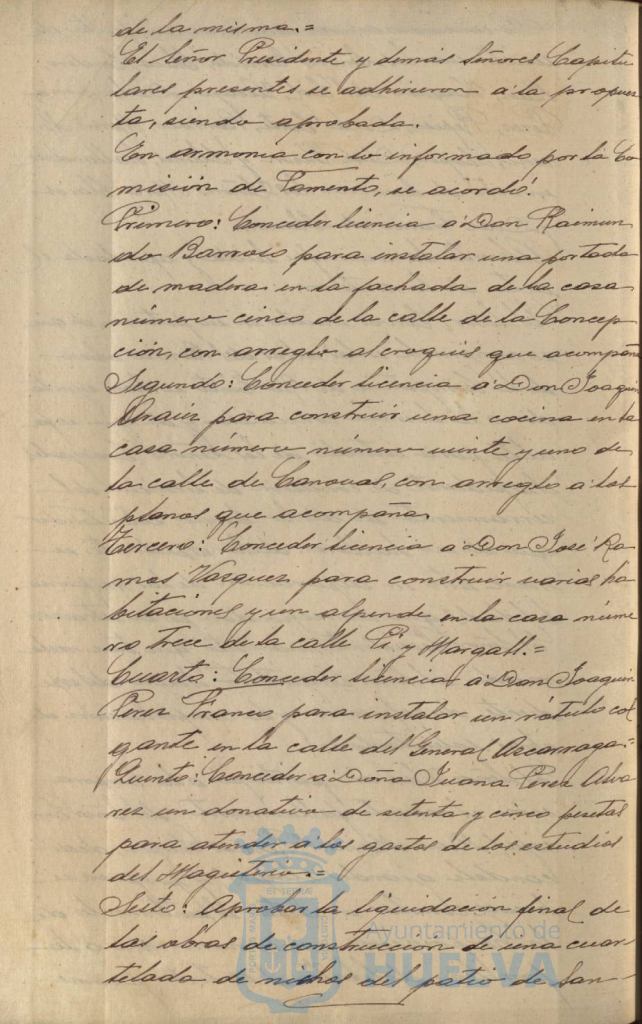 de la misma.=
El Señor Presidente y demás Señores Capitu
lares presentes se adhirieron a la propues
ta, siendo aprobada.
En armonia con lo informado por la Co
misión de Fomento, se acordó:
Primero: Conceder licencia a Don Raimun
do Barroso para instalar una portada
de madera en la fachada de la casa
número cinco de la calle de la Concep
ción, con arreglo al croquis que acompaña
Segundo: Conceder licencia a Don Joaquin
para construir una cocina en la
casa número número veinte y uno de
la calle de Canovas, con arreglo a los
planos que acompaña.
Tercero: Conceder licencia a Don José Ra
mos Vazquez para construir varias ha
bitaciones y un alpende en la casa núme
ro trece de la calle Pi y Margall.=
Cuarto: Conceder licencia a Don Joaquin
Perez Franco para instalar un rótulo col
gante en la calle del General Azcarraga.=
Quinto: Conceder a Doña Juana Perez Alva
rez un donativo de setenta y cinco pesetas
para atender a los gastos de los estudios
del Magisterio.=
Sexto: Aprobar la liquidación final de
las obras de construcción de una cuar
telada de nichos del patio de San-
Ayuntamiento de
HUELVA